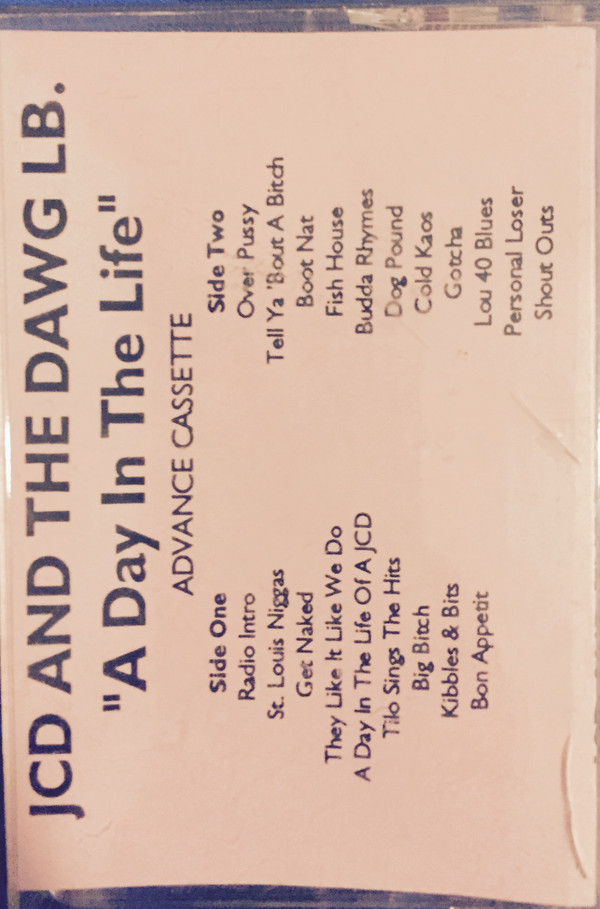 JCD AND THE DAWG LB.
"A Day In The Life"
ADVANCE CASSETTE
Side One
Radio Intro
St. Louis Niggas
Get Naked
They Like It Like We Do
A Day In The Life Of A JCD
Tilo Sings The Hits
Big Bitch
Kibbles & Bits
Bon Appetit
Side Two
Over Pussy
Tell Ya 'Bout A Bitch
Boot Nat
Fish House
Budda Rhymes
Dog Pound
Cold Kaos
Gotcha
Lou 40 Blues
Personal Loser
Shout Outs